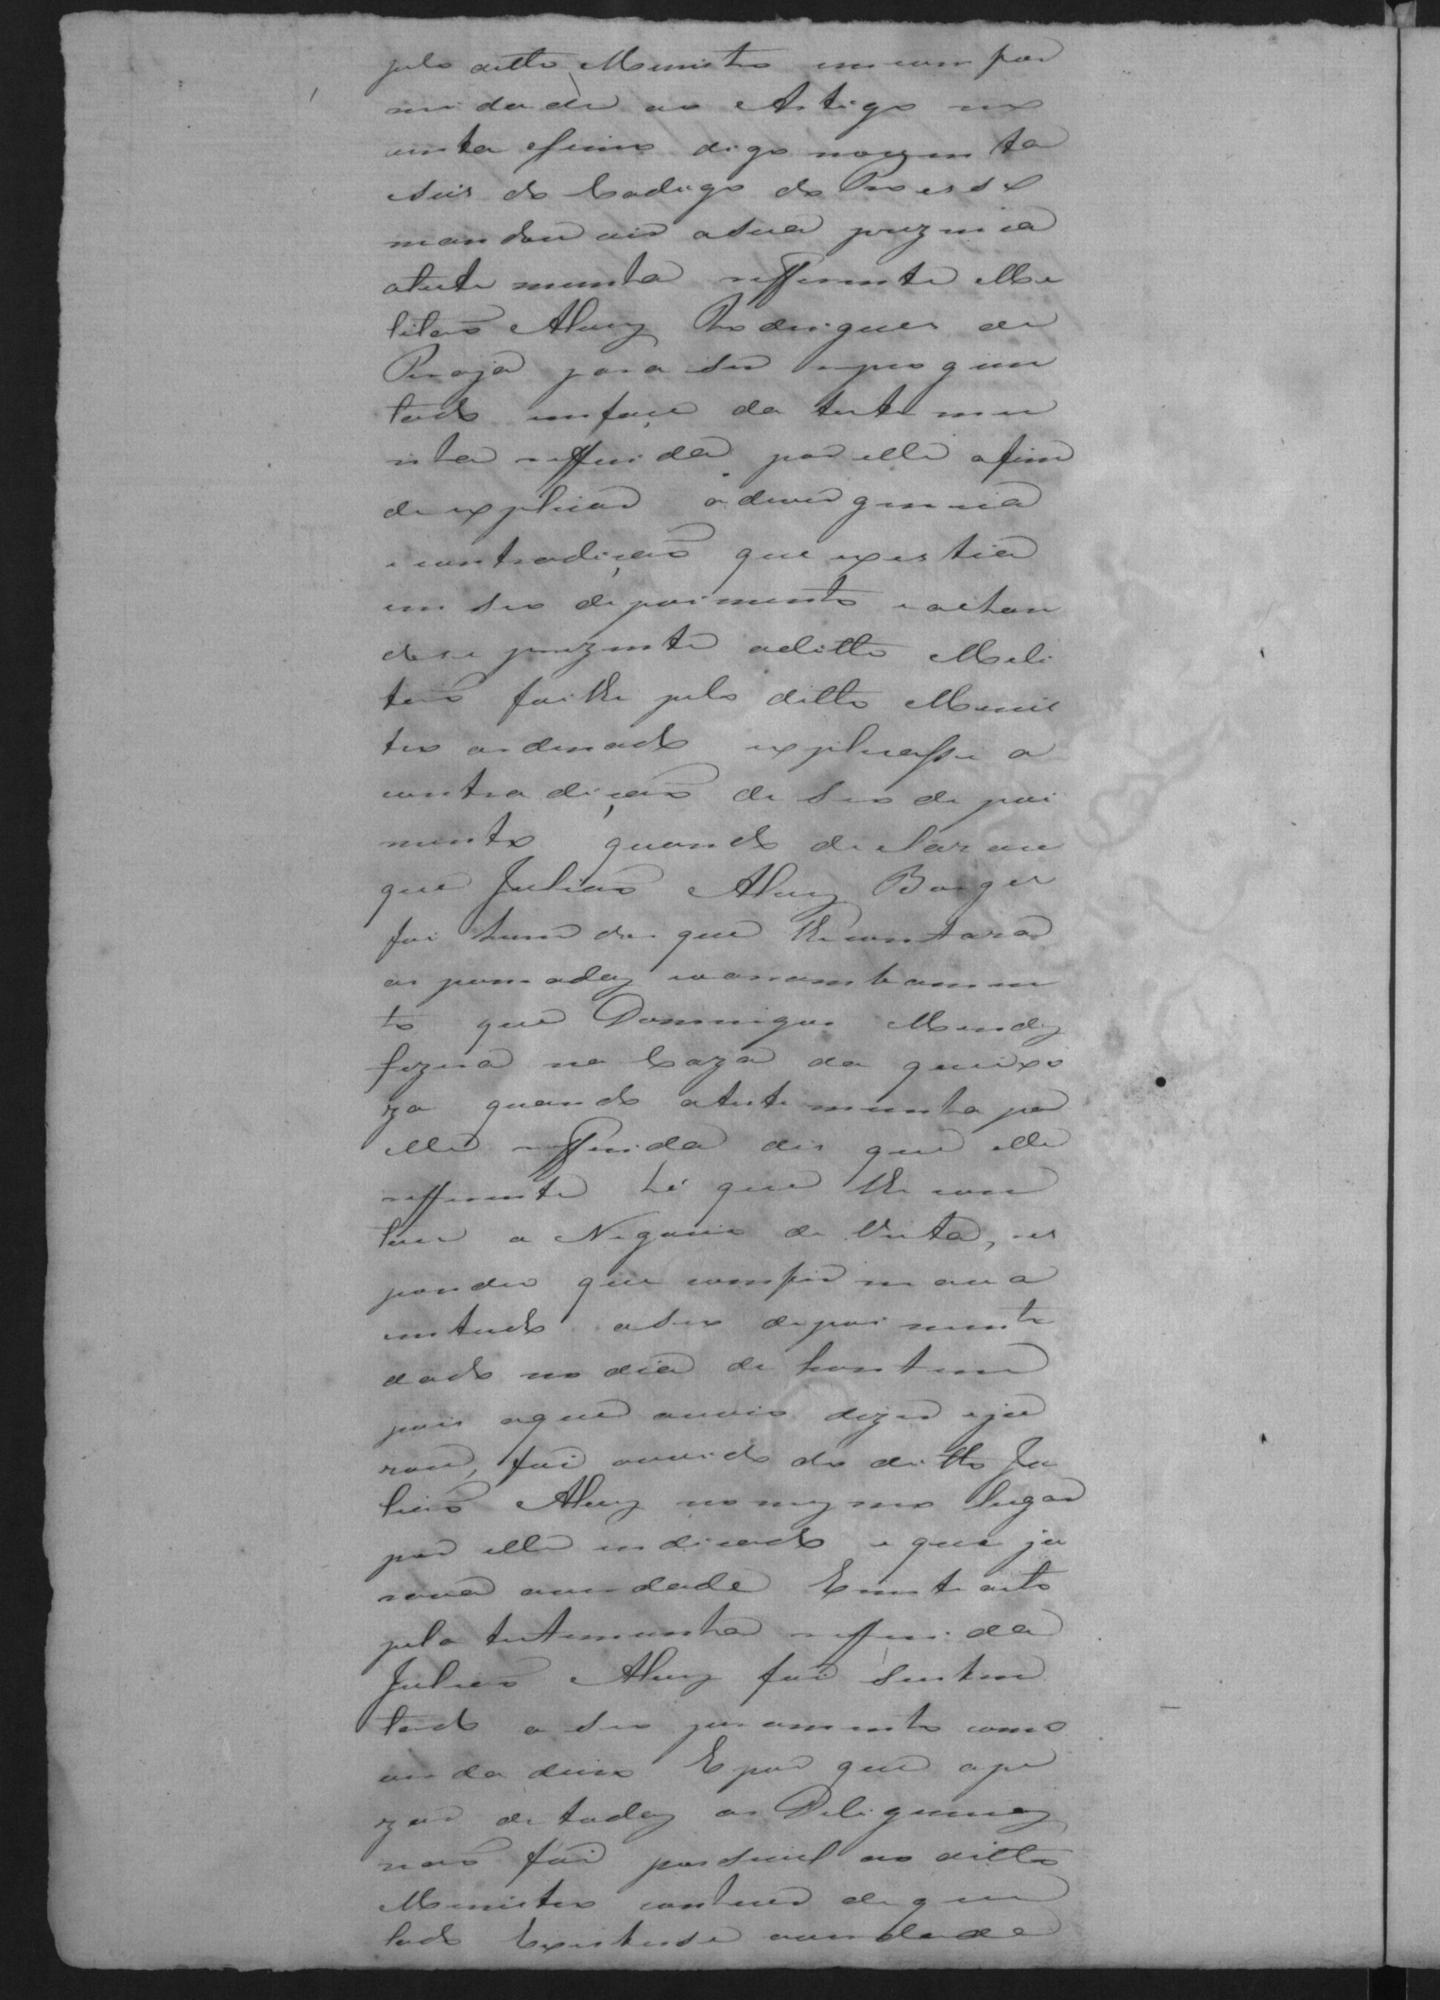 pelo ditto Ministro em com for
midade ao Artigo no
venta esinco digo noven ta
eseis do Codigo do Processo
mandou vir asua prezencia
atestemunha refferente Me
litaõ Alvez Rodrigues de
para ser repregun
tado emface da testemu
nha refferida por elle afim
de explicar a divergencia
e contradiçaõ que existia
em seo depoimento e achan
dose prezente aditto Meli
taõ foi lhe pelo ditto Minis
tro ordenado explicasse a
contradiçaõ de seo depoi
mento quando declarou
que Juliaõ Alvez Borges
foi hum dos que lhe contara
as
to que Domingos Mendez
fizera na Caza da queixo
za quando atestemunha por
elle refferida diz que elle
refferente hé que lhe con
tara o Negocio da Vista, res
pondeo que comfir mava
emtudo aseo depoimento
dado no dia de hontem
pois oque ouvio dizer eju
rou, foi ouvido do ditto Ju
liaõ Alvez no mezmo lugar
por elle indicado e que ju
rava averdade E neste acto
pela testemunha refferida
Juliaõ Alvez foi susten
tado o seo juramento como
verdadeiro E por que ape
zar de todaz as Deligenciaz
naõ foi possivel ao ditto
Ministro conhecer de que
lado Existisse averdade